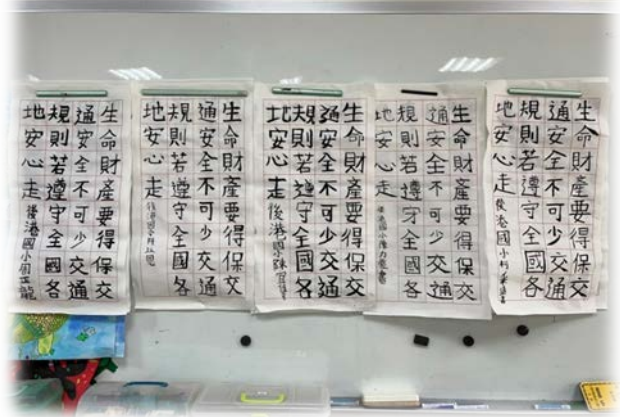 生命財產要得保交
通安全不可少交通
規則若遵守全國各
地安心走 後港國小柯
生命財產要得保交
通安全不可少交通
規則若遵守全國各
地安心走
生命財產要得保交
通安全不可少交通
規則若遵守全國各
地安心走 後港國小陳
生命財產要得保交
通安全不可少交通
規則若遵守全國各
地安心走 後港國小
生命財產要得保交
通安全不可少交通
規則若遵守全國各
地安心走 後港國小周正龍